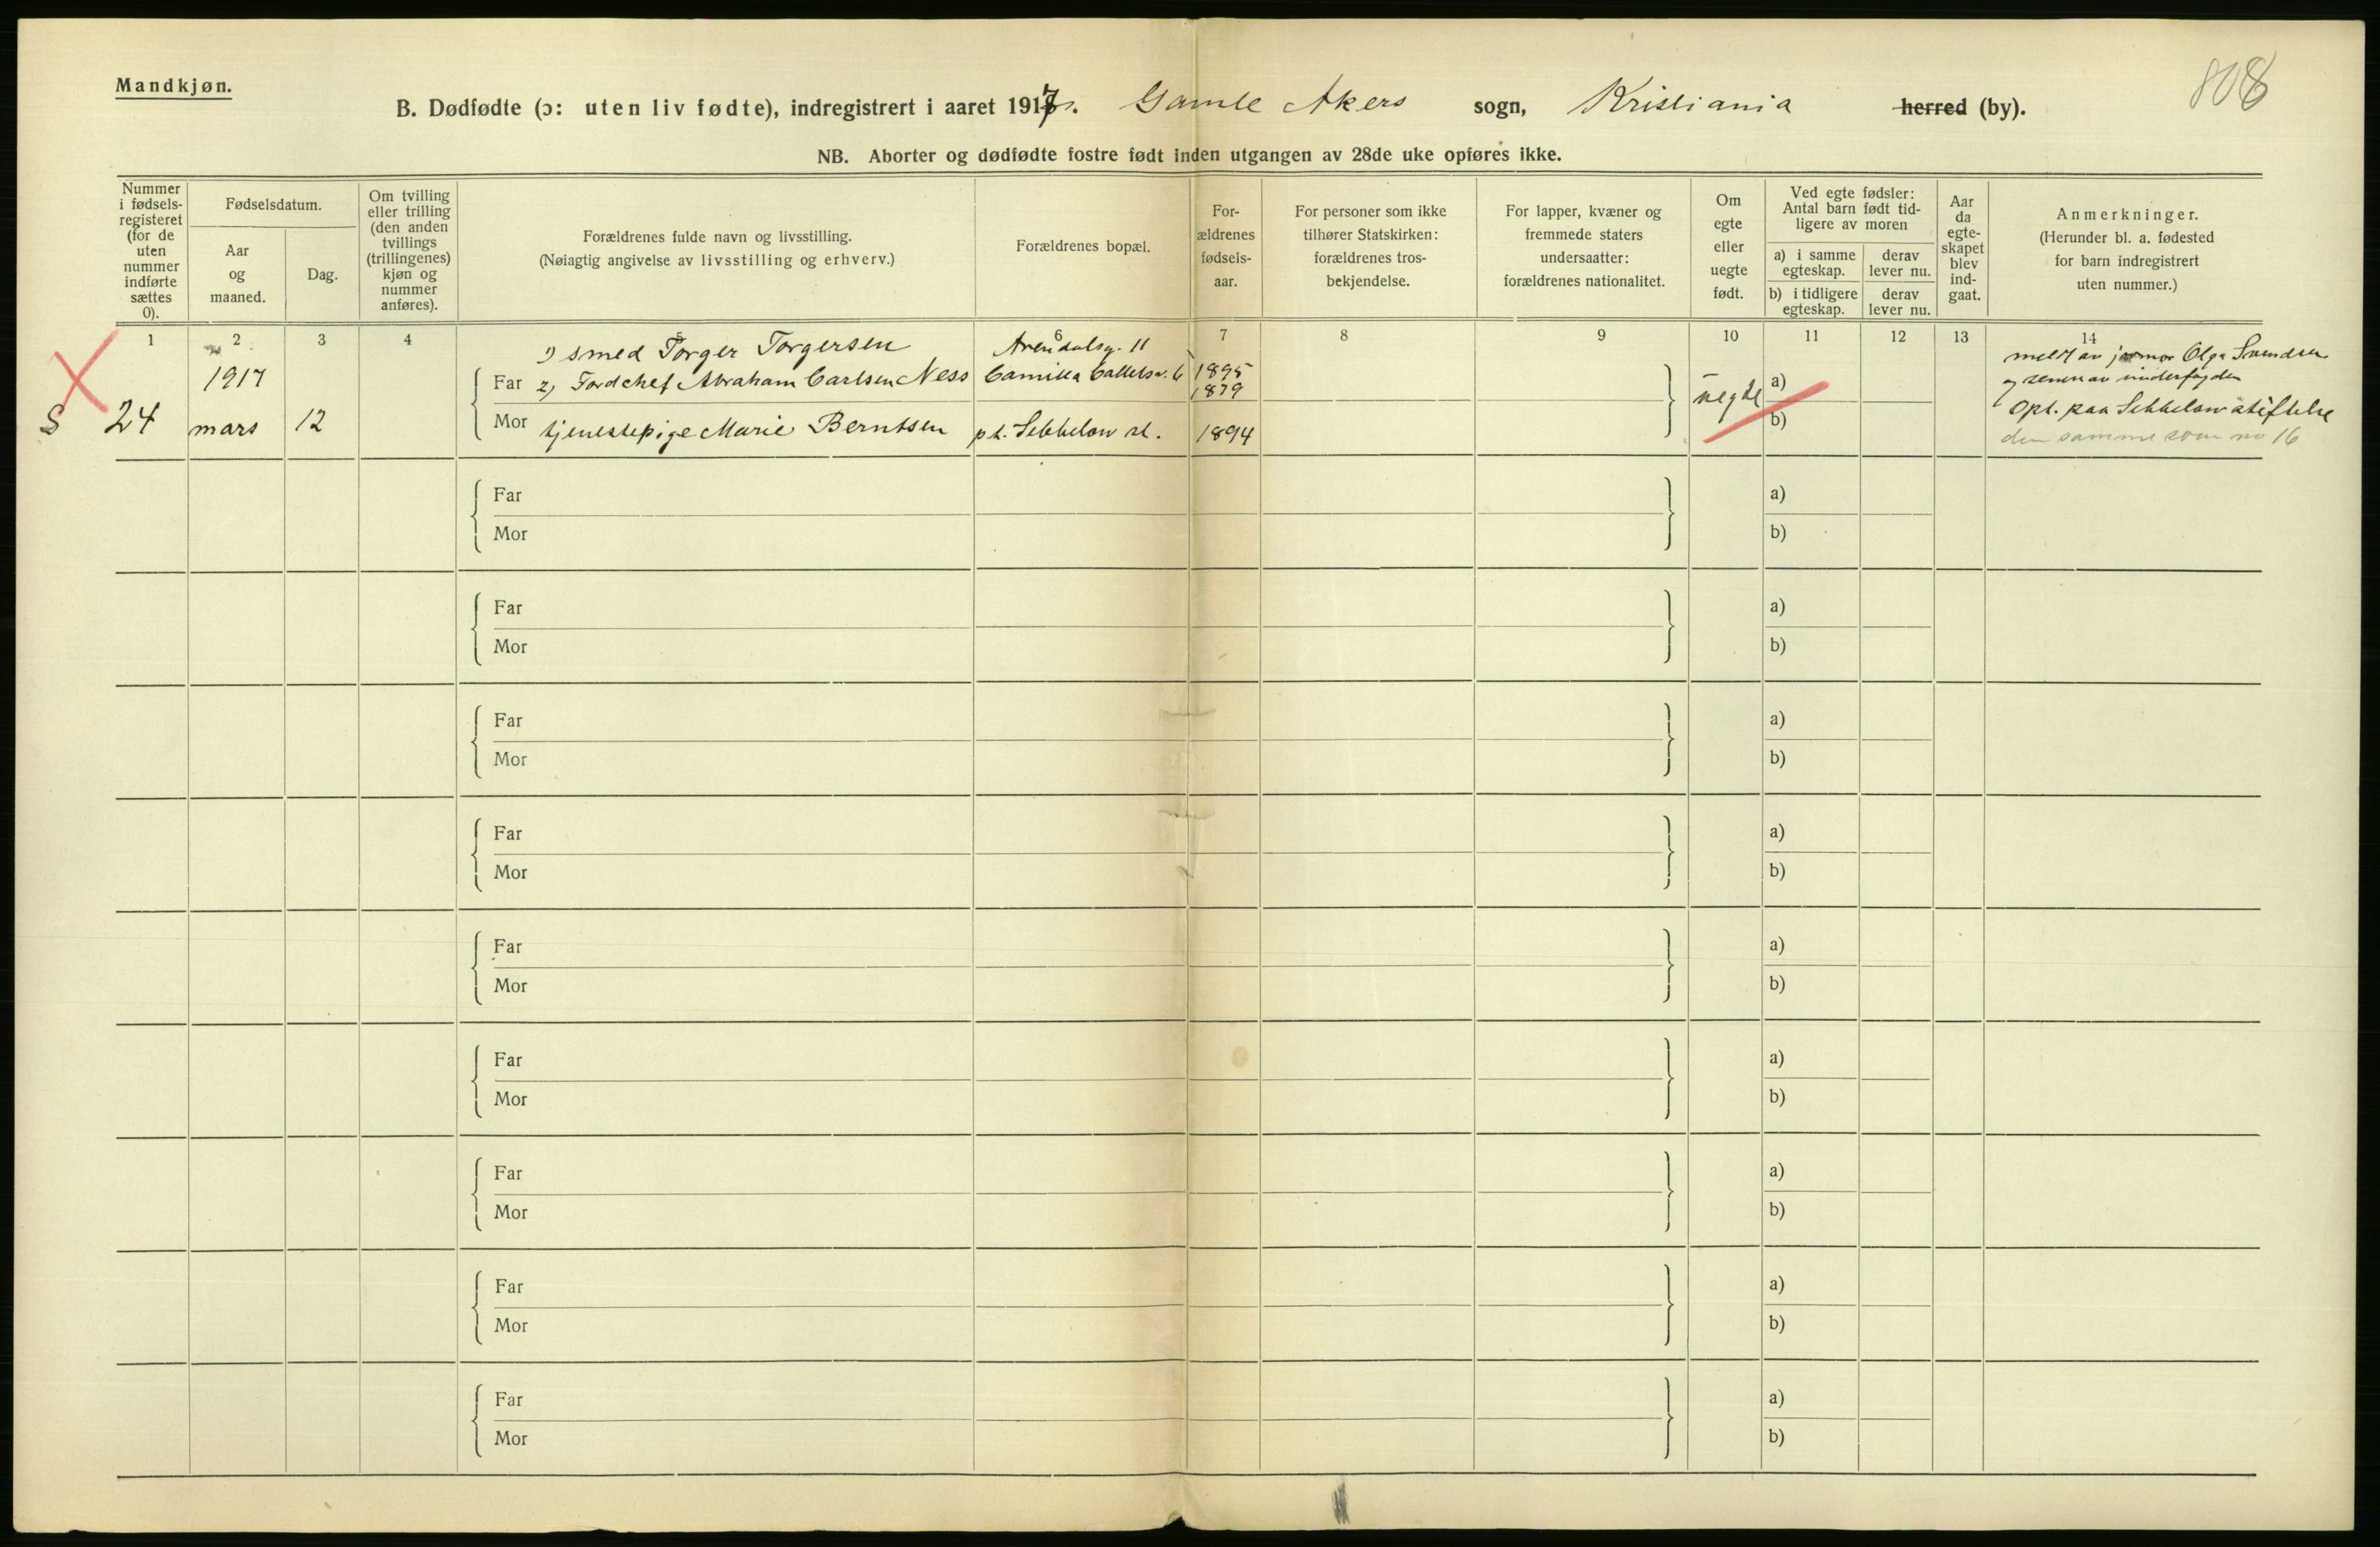 Mandkjøn.
808
B. Dødfødte (ɔ: uten liv fødte), indregistrert i aaret 1917. Gamle Akers sogn, Kristiania herred (by).
NB. Aborter og dødfødte fostre født inden utgangen av 28de uke opføres ikke.
Nummer i fødsels-registeret (for de uten nummer indførte sættes 0).
Fødselsdatum.
Aar og maaned.
Dag.
Om tvilling eller trilling (den anden tvillings (trillingenes) kjøn og nummer anføres).
Forældrenes fulde navn og livsstilling.
(Nøiagtig angivelse av livsstilling og erhverv.)
Forældrenes bopæl.
For-ældrenes fødsels-aar.
For personer som ikke tilhører Statskirken: forældrenes tros-bekjendelse.
For lapper, kvæner og fremmede staters undersaatter: forældrenes nationalitet.
Om egte eller uegte født.
Ved egte fødsler: Antal barn født tid-ligere av moren
a) i samme egteskap.
derav lever nu.
b) i tidligere egteskap.
derav lever nu.
Aar da egte-skapet blev ind-gaat.
Anmerkninger.
(Herunder bl. a. fødested for barn indregistrert uten nummer.)
1 2 3 4 5 6 7 8 9 10 11 12 13 14
1) smed Torger Torgersen Arendalsg. 11 1895
Far 2) Abraham Carlsen Ness Camilla Colletsv. 6 1879
S 24 1917 mars 12
Mor tjenestepige Marie Berntsen pt. st. 1894
uegte
a)
b)
meldt av jormor Olga Svendsen
og senere av
Opt. paa stiftelse
den samme som no 16
Far
Mor
a)
b)
Far
Mor
a)
b)
Far
Mor
a)
b)
Far
Mor
a)
b)
Far
Mor
a)
b)
Far
Mor
a)
b)
Far
Mor
a)
b)
Far
Mor
a)
b)
Far
Mor
a)
b)